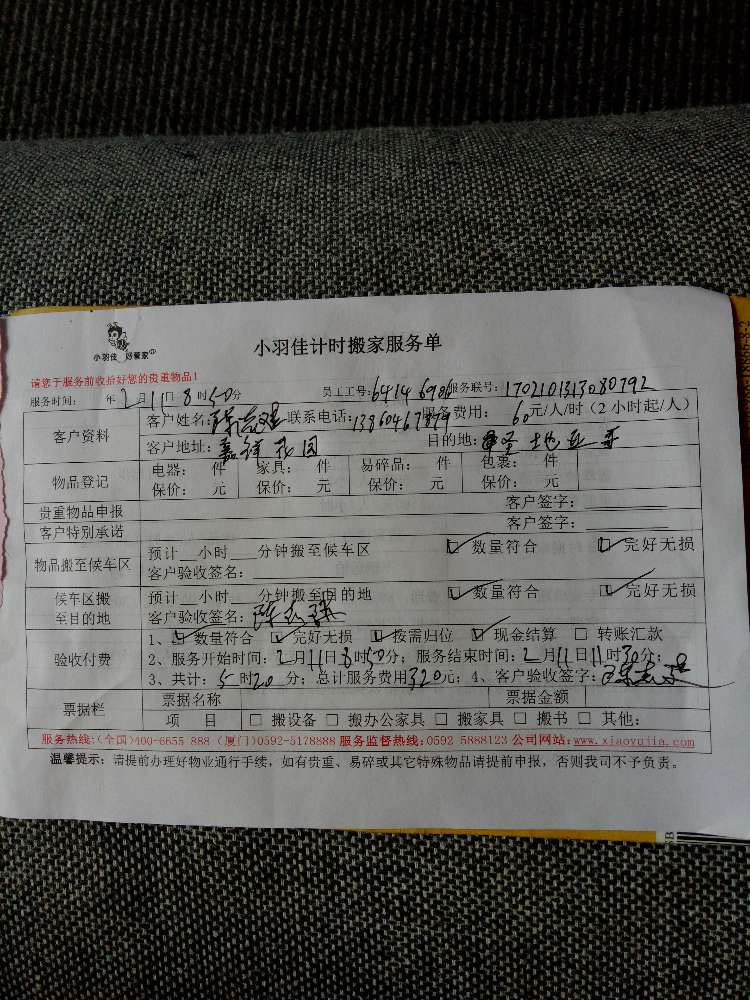 小羽佳 好管家
小羽佳计时搬家服务单
请您于服务前收拾好您的贵重物品!
服务时间: 年2月11日8时50分 员工工号:6414 6906 服务联号:1702101313080792
客户资料 客户姓名: 联系电话:13860467899 服务费用: 60元/人/时(2小时起/人)
客户地址:嘉祥花园 目的地:
物品登记 电器: 件 家具: 件 易碎品: 件 包裹: 件
保价: 元 保价: 元 保价: 元 保价: 元
贵重物品申报 客户签字:
客户特别承诺 客户签字:
物品搬至候车区 预计__小时__分钟搬至候车区 ☑ 数量符合 ☑ 完好无损
客户验收签名:
候车区搬至目的地 预计__小时__分钟搬至目的地 ☑ 数量符合 ☑ 完好无损
客户验收签名:
验收付费 1、☑ 数量符合 ☑ 完好无损 ☑ 按需归位 ☑ 现金结算 □ 转账汇款
2、服务开始时间:2月11日8时50分; 服务结束时间:2月11日11时30分;
3、共计:5时20分; 总计服务费用320元; 4、客户验收签字:
票据栏 票据名称 票据金额
项 目 □ 搬设备 □ 搬办公家具 □ 搬家具 □ 搬书 □ 其他:
服务热线:(全国)400-6655 888 (厦门)0592-5178888 服务监督热线:0592 5888123 公司网站:www.xiaoyujia.com
温馨提示: 请提前办理好物业通行手续, 如有贵重、易碎或其它特殊物品请提前申报, 否则我司不予负责。